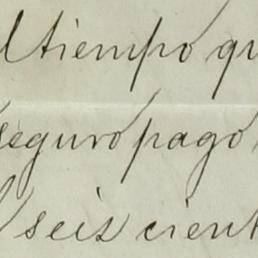 el tiempo qu
seguro pago
seis cient